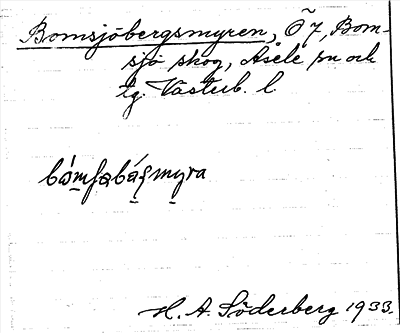 Bomsjöbergsmyren, Ö 7, Bom-
sjö skog, Åsele sn och
tg. Västerb. l.
H. A. Söderberg 1933.